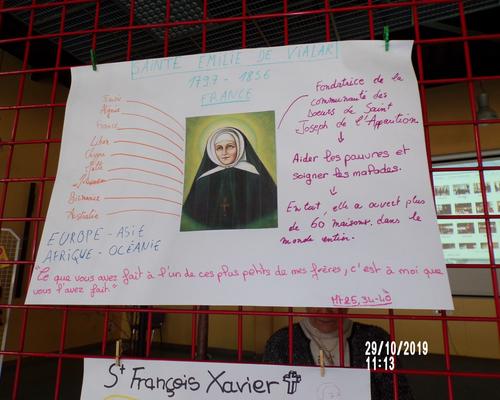 SAINTE EMILIE DE VIALAR
1797 - 1856
FRANCE
France
Liban
Chypre
Malte
Birmanie
Australie
EUROPE - ASIE
AFRIQUE - OCÉANIE
Fondatrice de la
communauté des
Soeurs de Saint
Joseph de l'Apparition
Aider les pauvres et
soigner les malades.
En tout, elle a ouvert plus
de 60 maisons, dans le
monde entier.
"Ce que vous avez fait à l'un de ces plus petits de mes frères, c'est à moi que
vous l'avez fait"
Mt 25, 34-40
St François Xavier
29/10/2019
11:13